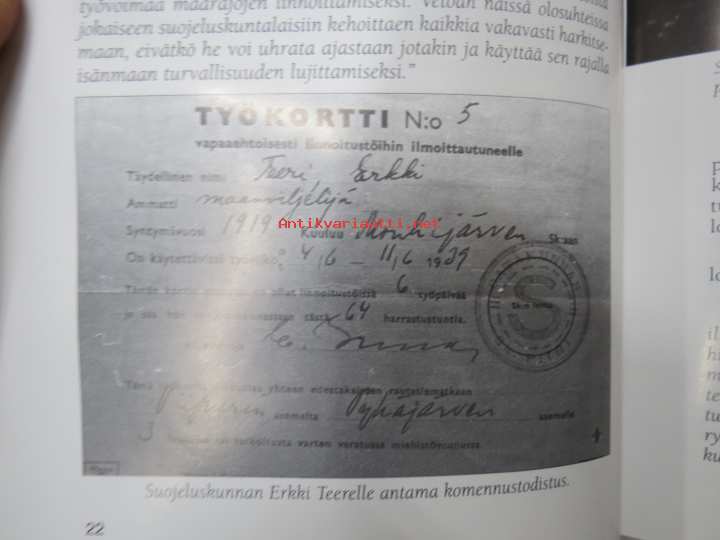 työvoimaa määräajojen linnoittamiseksi. Vetoan näissä olosuhteissa
jokaiseen suojeluskuntalaisiin kehoittaen kaikkia vakavasti harkitse-
maan, eivätkö he voi uhrata ajastaan jotakin ja käyttää sen rajalla
isänmaan turvallisuuden lujittamiseksi."
TYÖKORTTI N:o 5
vapaaehtoisesti linnoitustöihin ilmoittautuneelle
Täydellinen nimi Teeri Erkki
Ammatti maanviljelijä
Syntymävuosi 1919 Kuuluu Mouhijärven Sk:aan
Antikvariaatti.net
On käytettävissä 4/6 – 11/6 1939
Tämän kortin ollut linnoitustöissä 6 työpäivää
ja saa tästä 64 harrastustuntia.
S
Tämä yhteen edestakaiseen rautatiematkaan
asemalta Pyhäjärven asemalle
varten varatussa miehistövaunussa.
Suojeluskunnan Erkki Teerelle antama komennustodistus.
22